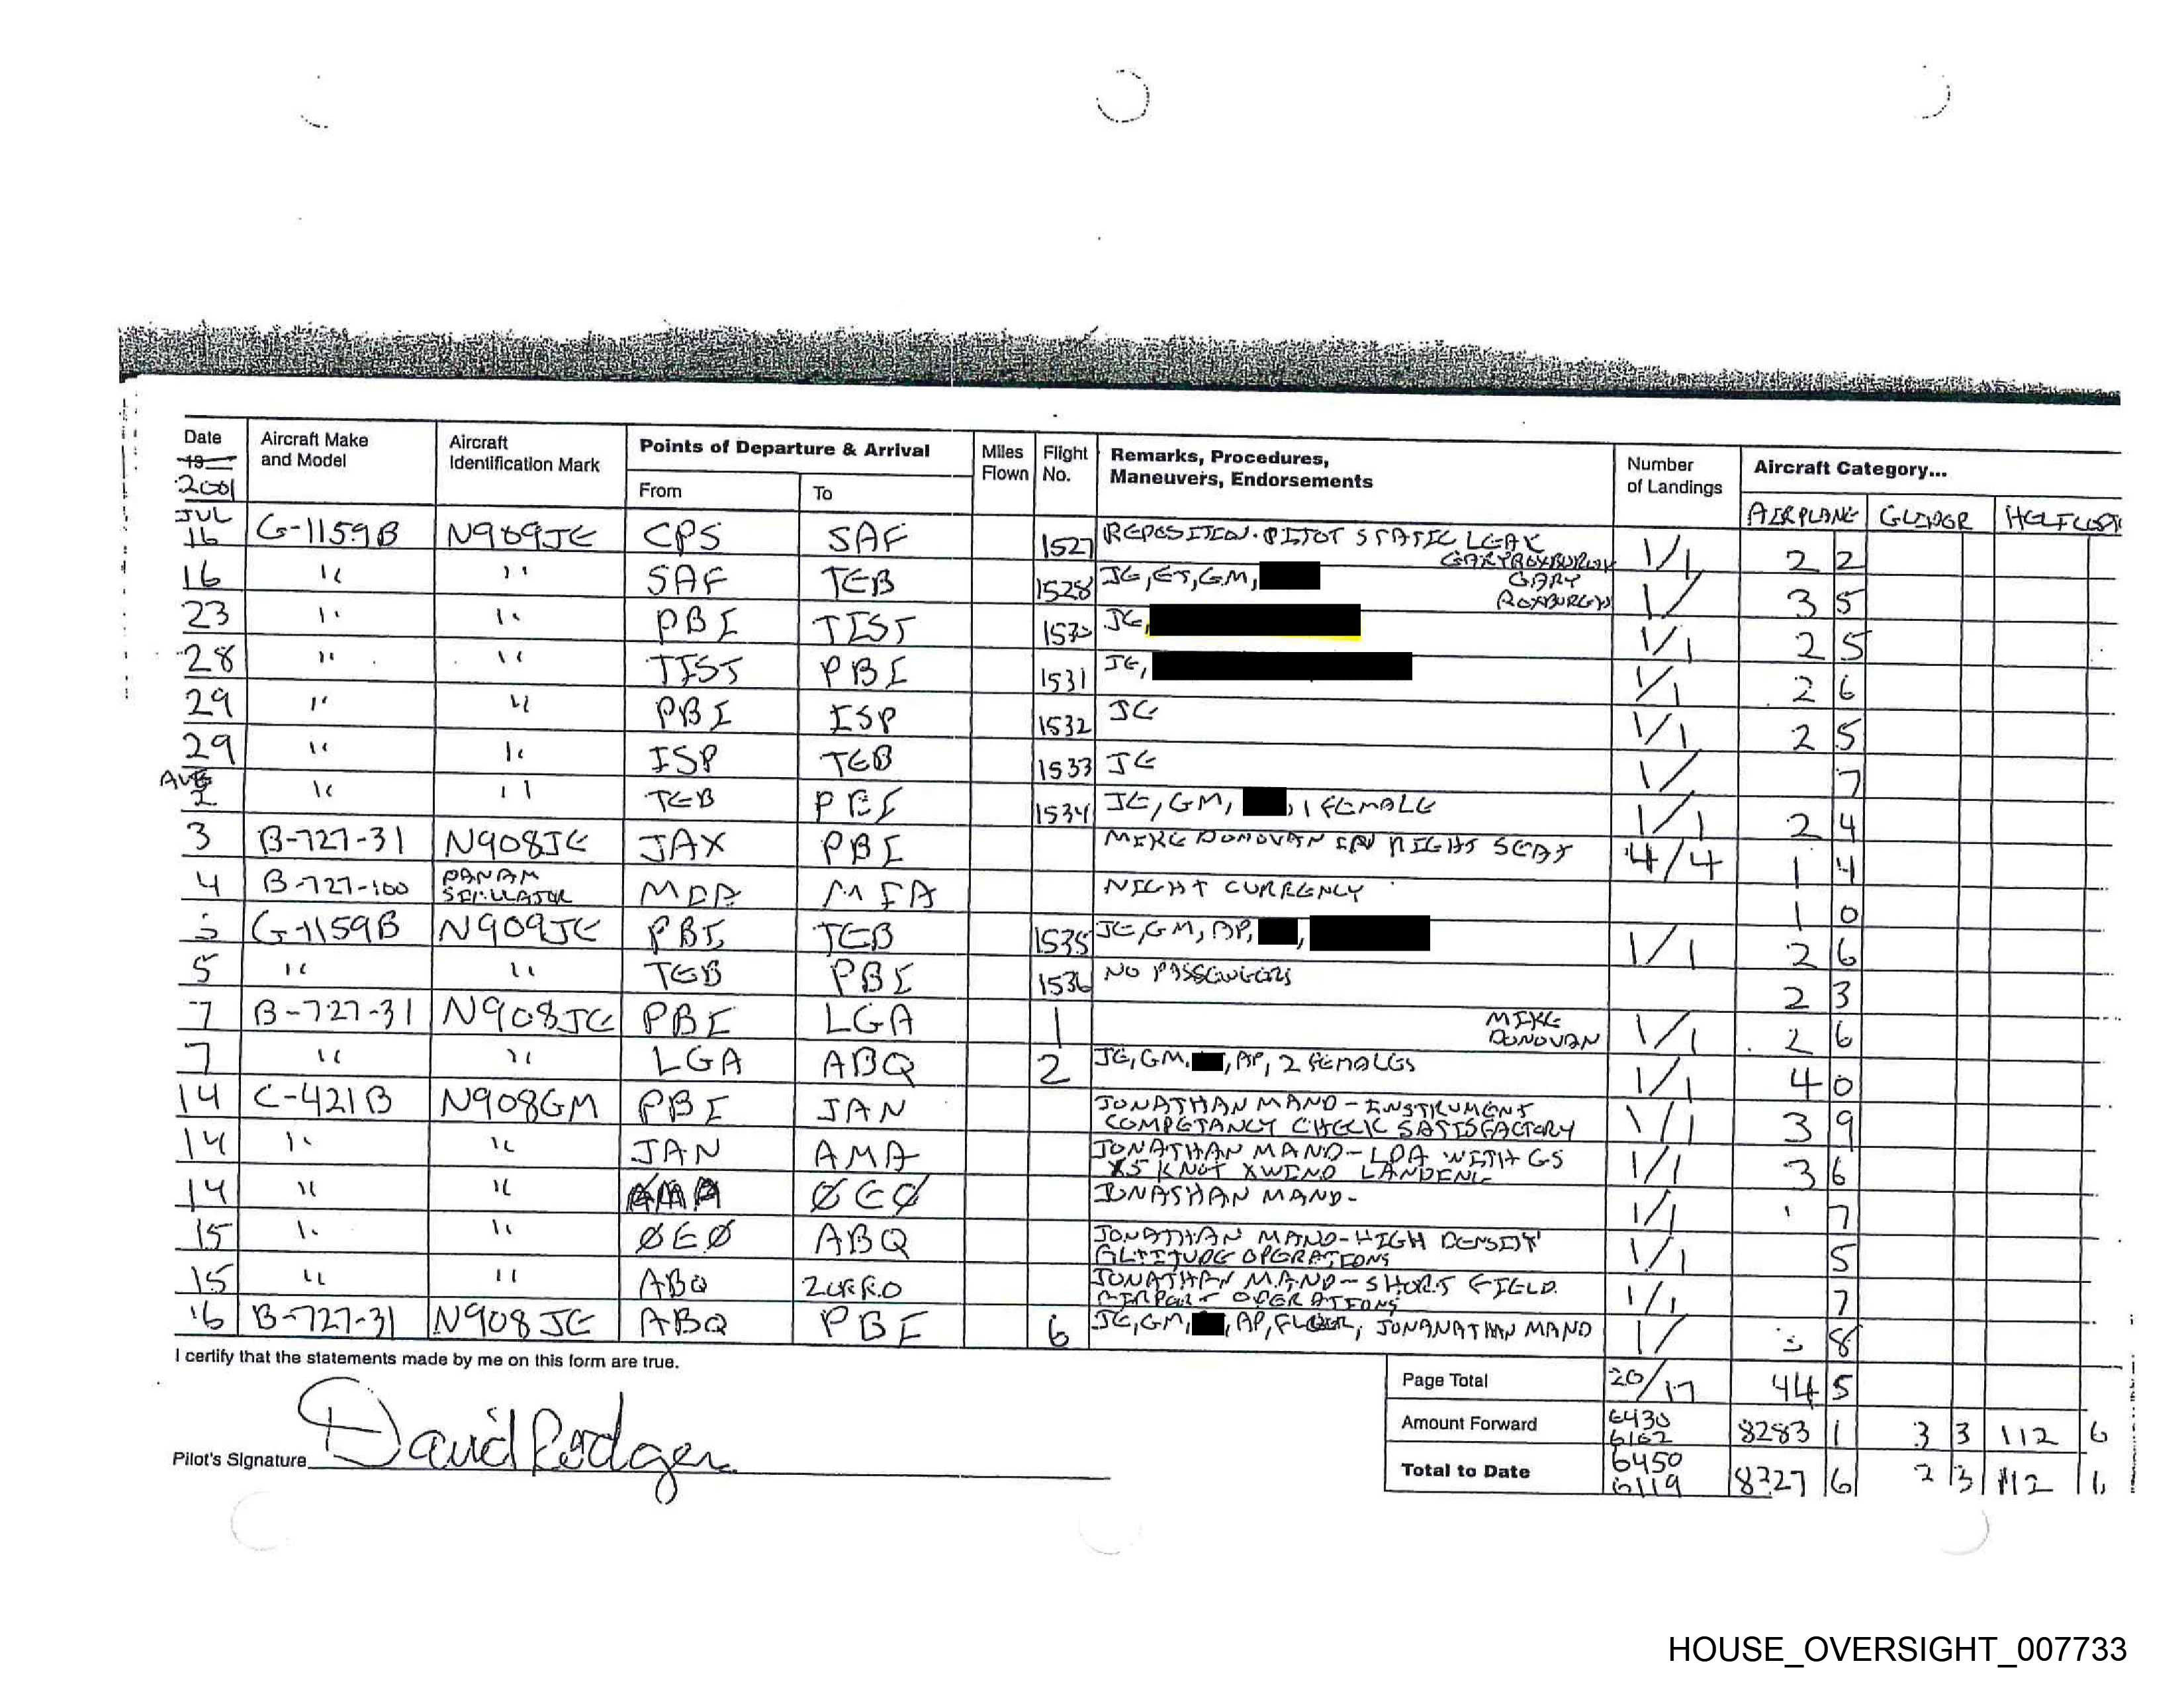 Date Aircraft Make and Model Aircraft Identification Mark Points of Departure & Arrival Miles Flown Flight No. Remarks, Procedures, Maneuvers, Endorsements Number of Landings Aircraft Category...
19 2001 From To AIRPLANE GLIDER
JUL 16 G-1159B N909JE CPS SAF 1527 REPOSITION. PITOT STATIC LEAK GARY ROXBURGH 1/1 2 2
16 " " SAF TEB 1528 JE, ET, GM, GARY ROXBURGH 1/ 3 5
23 " " PBI TIST 1530 JE, 1/1 2 5
28 " " TIST PBI 1531 JE, 1/1 2 6
29 " " PBI ISP 1532 JE 1/1 2 5
29 " " ISP TEB 1533 JE 1/ 7
AUG 2 " " TEB PBI 1534 JE, GM, , 1 FEMALE 1/1 2 4
3 B-727-31 N908JE JAX PBI MIKE DONOVAN IN RIGHT SEAT 4/4 1 4
4 B-727-100 PANAM SIMULATOR MIA MIA NIGHT CURRENCY 1 0
G-1159B N909JE PBI TEB 1535 JE, GM, AP, , 1/1 2 6
5 " " TEB PBI 1536 NO PASSENGERS 2 3
7 B-727-31 N908JE PBI LGA 1 MIKE DONOVAN 1/1 2 6
7 " " LGA ABQ 2 JE, GM, , AP, 2 FEMALES 1/1 4 0
14 C-421B N908GM PBI JAN JONATHAN MANO - INSTRUMENT COMPETANCY CHECK SATISFACTORY 1/1 3 9
14 " " JAN AMA JONATHAN MANO - LOA WITH GS KNOT XWIND LANDING 1/1 3 6
14 " " AMA ØEØ JONATHAN MANO - 1/1 7
15 " " ØEØ ABQ JONATHAN MANO - HIGH DENSITY ALTITUDE OPERATIONS 1/1 5
15 " " ABQ ZORRO JONATHAN MANO - SHORT FIELD AIRPORT OPERATIONS 1/1 7
16 B-727-31 N908JE ABQ PBI 6 JE, GM, , AP, JONANATHAN MANO 1/ 8
I certify that the statements made by me on this form are true.
Page Total 20/17 44 5
Amount Forward 6430 8283 1 3 3 112 6
Pilot's Signature David Rodgers
Total to Date 6450 6119 8327 6 3 112 6
HOUSE_OVERSIGHT_007733